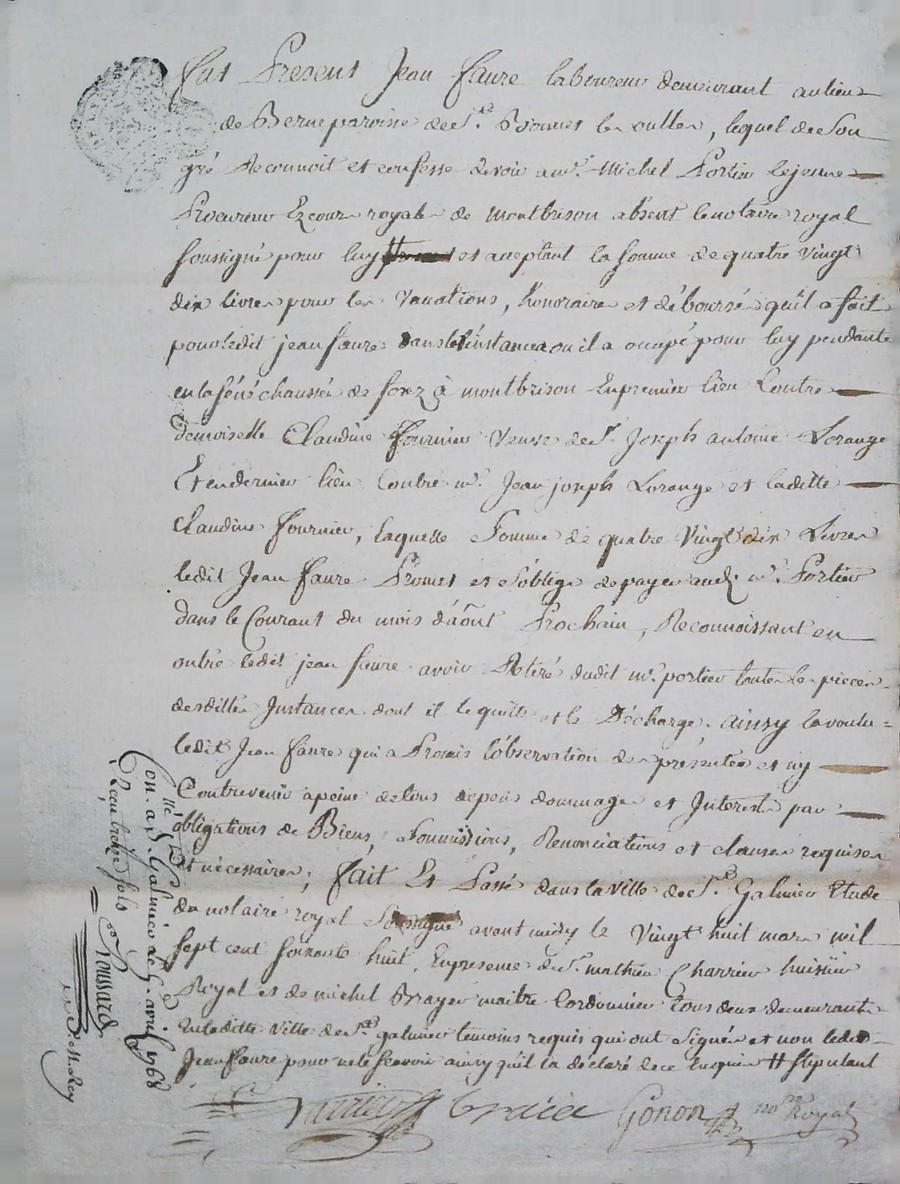 fut Present Jean faure laboureur demeurant au lieu
de Berne paroisse de St. Bonnet les oulles, lequel de son
gré Reconnoit et confesse devoir a mr. Michel Portier lejeune
Procureur Ez cour royale de montbrison absent le notaire royal
soussigné pour luy # et acceptant la somme de quatre vingt
dix livres pour les vacations, honoraires et déboursés qu'il a fait
pour ledit jean faure dans les instances ou il a occupé pour luy pendante
en la sénéchaussée de forez à montbrison En premier lieu Contre
demoiselle Claudine fournier veuve de sr. Joseph antoine Lorange
Et en dernier lieu Contre mr. Jean joseph Lorange et laditte
Claudine fournier, laquelle Somme de quatre Vingt dix Livres
ledit Jean faure Promet et s'oblige de payer aud. mr. Portier
dans le Courant du mois d'août Prochain, Reconnoissant en
outre ledit jean faure avoir Retiré dudit mr. portier toutes les pieces
desdittes Instances dont il le quitte et le Décharge, ainsy la voulu
ledit Jean faure qui a Promis l'observation des présentes et ny
Contrevenir a peine de tous depens dommages et Interests par
obligations de Biens, Soumissions, Renonciations et clauses requises
et nécessaires; fait Et Passé dans la ville de St. Galmier Etude
du notaire royal Soussigné avant midy le Vingt huit mars mil
sept cent soixante huit, En presence de sr. mathieu Charrier huissier
Royal et de michel Brayer maitre Cordonnier tous deux demeurant
en laditte ville de St. galmier temoins requis qui ont signés et non ledit
Jean faure pour ne le scavoir ainsy qu'il la déclaré de ce enquis # stipulant
Gonon nore Royal
Con.llé a St. Galmier le 5 avril 1768
Rx treize sols
Poussard